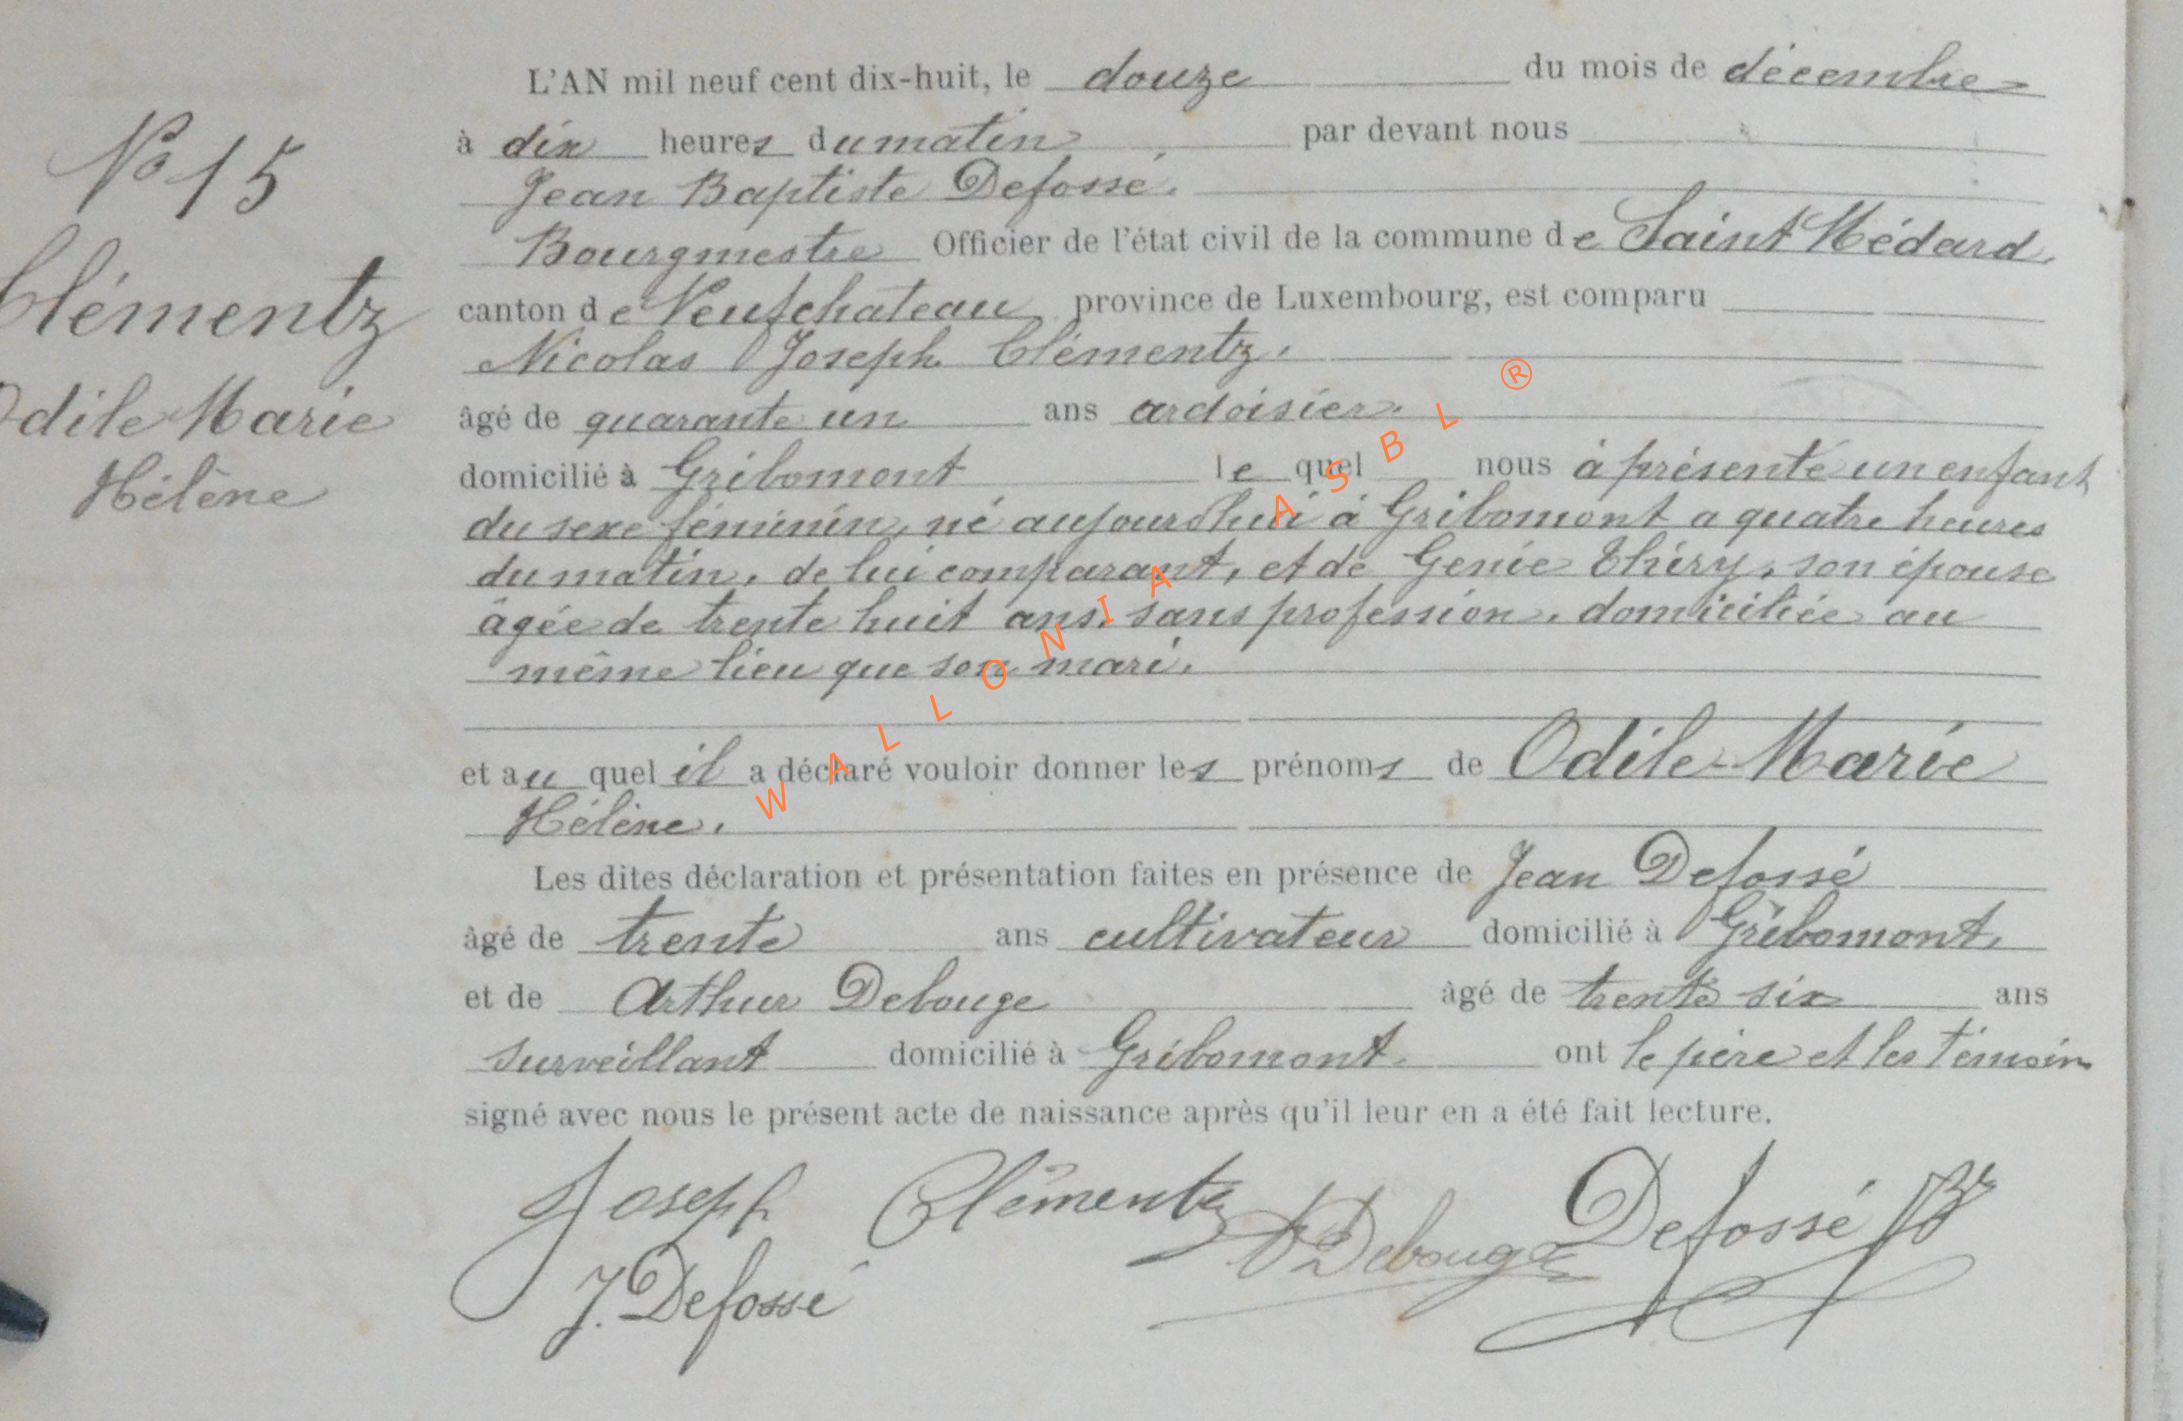 N° 15
Clémentz
Odile Marie
Hélène
L'AN mil neuf cent dix-huit, le douze du mois de décembre
à dix heures du matin par devant nous
Jean Baptiste Defossé.
Bourgmestre Officier de l'état civil de la commune de Saint Médard,
canton de Neufchateau, province de Luxembourg, est comparu
Nicolas Joseph Clémentz,
âgé de quarante un ans ardoisier.
domicilié à Gribomont lequel nous à présenté un enfant
du sexe féminin, né aujourd'hui à Gribomont a quatre heures
du matin, de lui comparant, et de Genie Thiry, son épouse
âgée de trente huit ans, sans profession, domiciliée au
même lieu que son mari.
et auquel il a déclaré vouloir donner les prénoms de Odile-Marie
Hélène.
Les dites déclaration et présentation faites en présence de Jean Defossé
âgé de trente ans cultivateur domicilié à Gribomont,
et de Arthur Debouge âgé de trente six ans
surveillant domicilié à Gribomont. ont le père et les témoins
signé avec nous le présent acte de naissance après qu'il leur en a été fait lecture.
Joseph Clémentz A Debouge Defossé JB
J. Defossé
WALLONIA ASBL ®